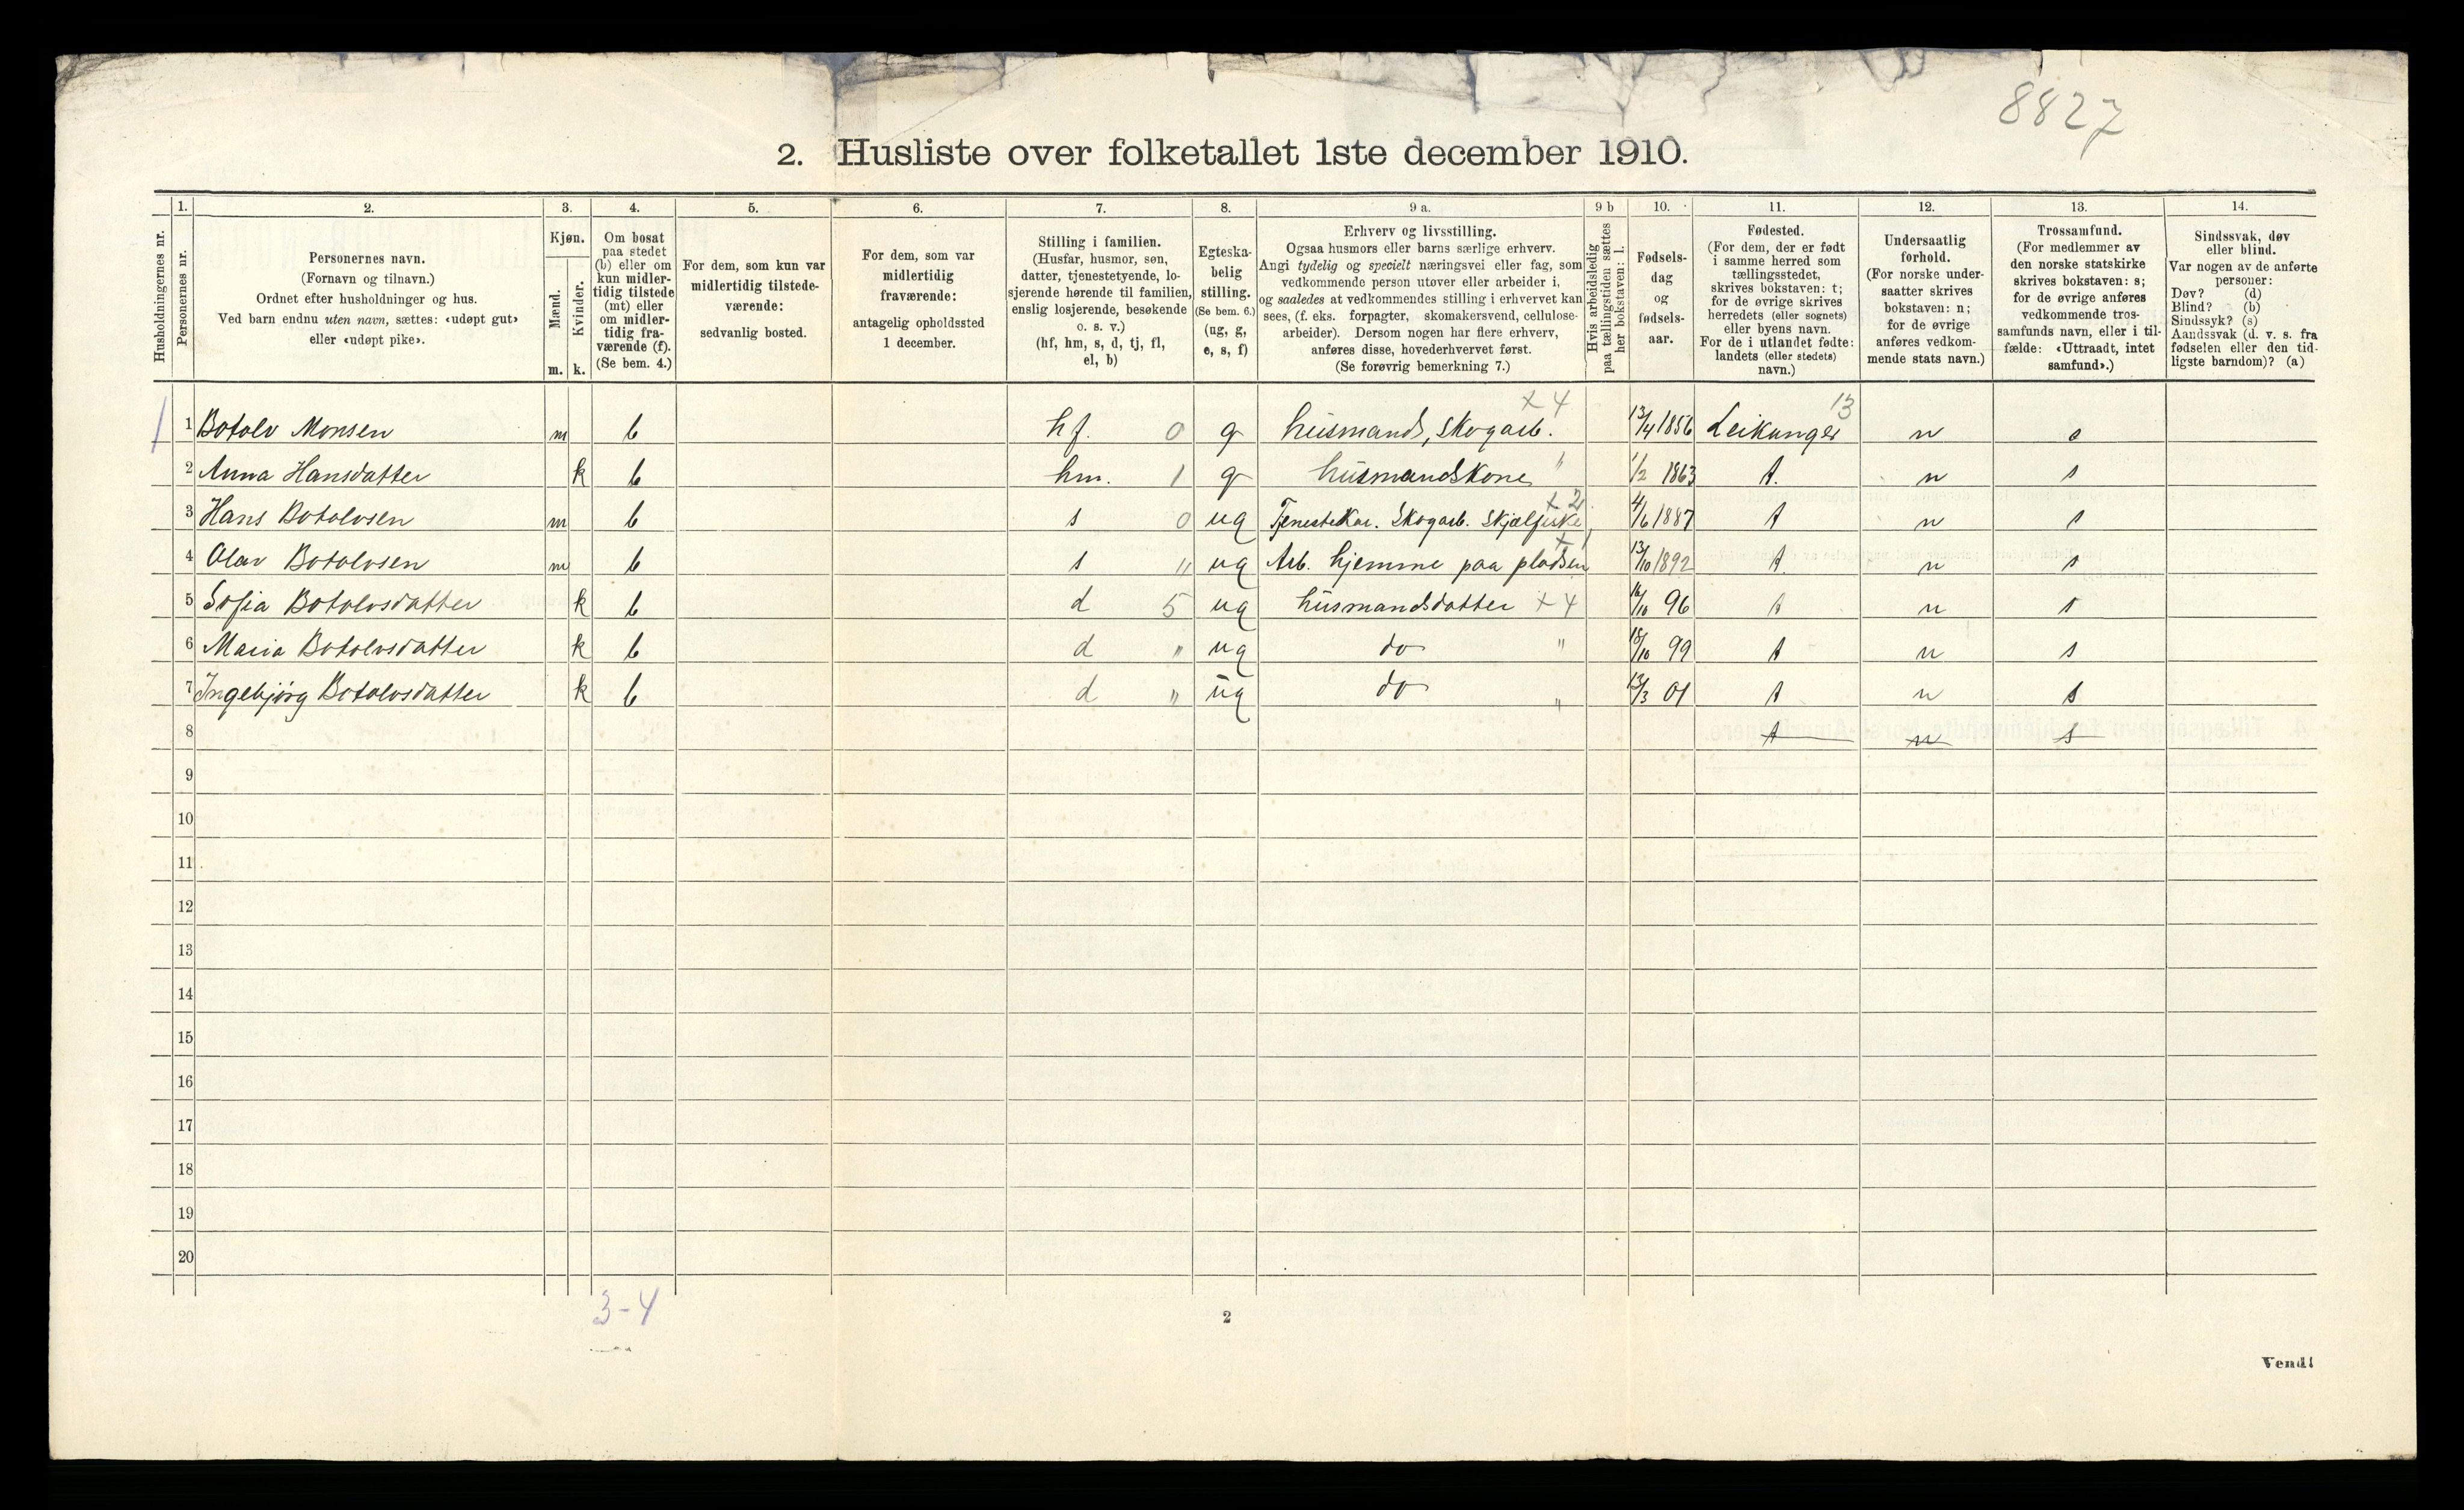 8827
2. Husliste over folketallet 1ste december 1910.
1. 2. 3. 4. 5. 6. 7. 8. 9 a. 9 b 10. 11. 12. 13. 14.
Husholdningernes nr.
Personernes nr.
Personernes navn.
(Fornavn og tilnavn.)
Ordnet efter husholdninger og hus.
Ved barn endnu uten navn, sættes: «udøpt gut»
eller «udøpt pike».
Kjøn.
Mænd.
Kvinder.
m. k.
Om bosat
paa stedet
(b) eller om
kun midler-
tidig tilstede
(mt) eller
om midler-
tidig fra-
værende (f).
(Se bem. 4.)
For dem, som kun var
midlertidig tilstede-
værende:
sedvanlig bosted.
For dem, som var
midlertidig
fraværende:
antagelig opholdssted
1 december.
Stilling i familien.
(Husfar, husmor, søn,
datter, tjenestetyende, lo-
sjerende hørende til familien,
enslig losjerende, besøkende
o. s. v.)
(hf, hm, s, d, tj, fl,
el, b)
Egteska-
belig
stilling.
(Se bem. 6.)
(ug, g,
e, s, f)
Erhverv og livsstilling.
Ogsaa husmors eller barns særlige erhverv.
Angi tydelig og specielt næringsvei eller fag, som
vedkommende person utøver eller arbeider i,
og saaledes at vedkommendes stilling i erhvervet kan
sees, (f. eks. forpagter, skomakersvend, cellulose-
arbeider). Dersom nogen har flere erhverv,
anføres disse, hovederhvervet først.
(Se forøvrig bemerkning 7.)
Hvis arbeidsledig
paa tællingstiden sættes
her bokstaven: l.
Fødsels-
dag
og
fødsels-
aar.
Fødested.
(For dem, der er født
i samme herred som
tællingsstedet,
skrives bokstaven: t;
for de øvrige skrives
herredets (eller sognets)
eller byens navn.
For de i utlandet fødte:
landets (eller stedets)
navn.)
Undersaatlig
forhold.
(For norske under-
saatter skrives
bokstaven: n;
for de øvrige
anføres vedkom-
mende stats navn.)
Trossamfund.
(For medlemmer av
den norske statskirke
skrives bokstaven: s;
for de øvrige anføres
vedkommende tros-
samfunds navn, eller i til-
fælde: «Uttraadt, intet
samfund».)
Sindssvak, døv
eller blind.
Var nogen av de anførte
personer:
Døv? (d)
Blind? (b)
Sindssyk? (s)
Aandssvak (d. v. s. fra
fødselen eller den tid-
ligste barndom)? (a)
x 4 13
1 1 Botolv Monsen m b hf. 0 g husmand, skogarb. 13/4 1856 Leikanger n s
2 Anna Hansdatter k b hm. 1 g husmandskone " 1/2 1863 t. n s
3 Hans Botolvsen m b s 0 ug Tjenestekar. Skogarb. Skjælfiske x 2 4/6 1887 t n s
4 Olav Botolvsen m b s " ug Arb. hjemme paa pladsen x 1 13/10 1892 t n s
5 Sofia Botolvsdatter k b d 5 ug husmandsdatter x 4 16/10 96 t n s
6 Maria Botolvsdatter k b d " ug do " 18/10 99 t n s
7 Ingebjörg Botolvsdatter k b d " ug do " 13/3 01 t n s
8 t n s
9
10
11
12
13
14
15
16
17
18
19
20
3-4
2
Vend!